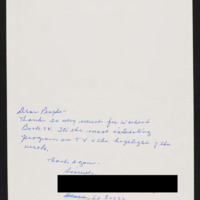 Dear People -
Thanks so very much for Weekend
Book TV. It's the most interesting
program on TV & the highlight of the
week.
Thank you -